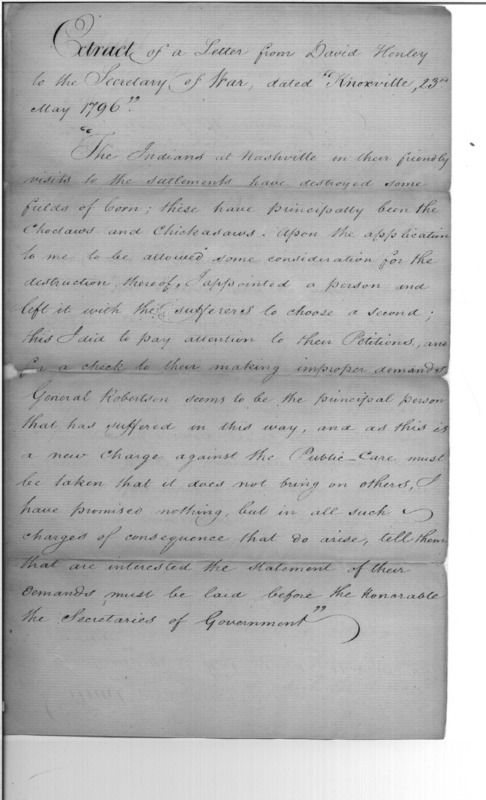 Extract of a Letter from David Henley
to the Secretary of War, dated "Knoxville, 23rd
May 1796".
"The Indians at Nashville in their friendly
visits to the settlements have destroyed some
fields of Corn; these have principally been the
Choctaws and Chickasaws. Upon the application
to me to be allowed some consideration for the
destruction thereof, I appointed a person and
left it with the sufferers to choose a second;
this I did to pay attention to their Petitions, and
for a check to their making improper demands,
General Robertson seems to be the principal person
that has suffered in this way, and as this is
a new charge against the Public—Care must
be taken that it does not bring on others, I
have promised nothing, but in all such
charges of consequence that do arise, tell them
that are interested the statement of their
Demands must be laid before the Honorable
the Secretaries of Government"